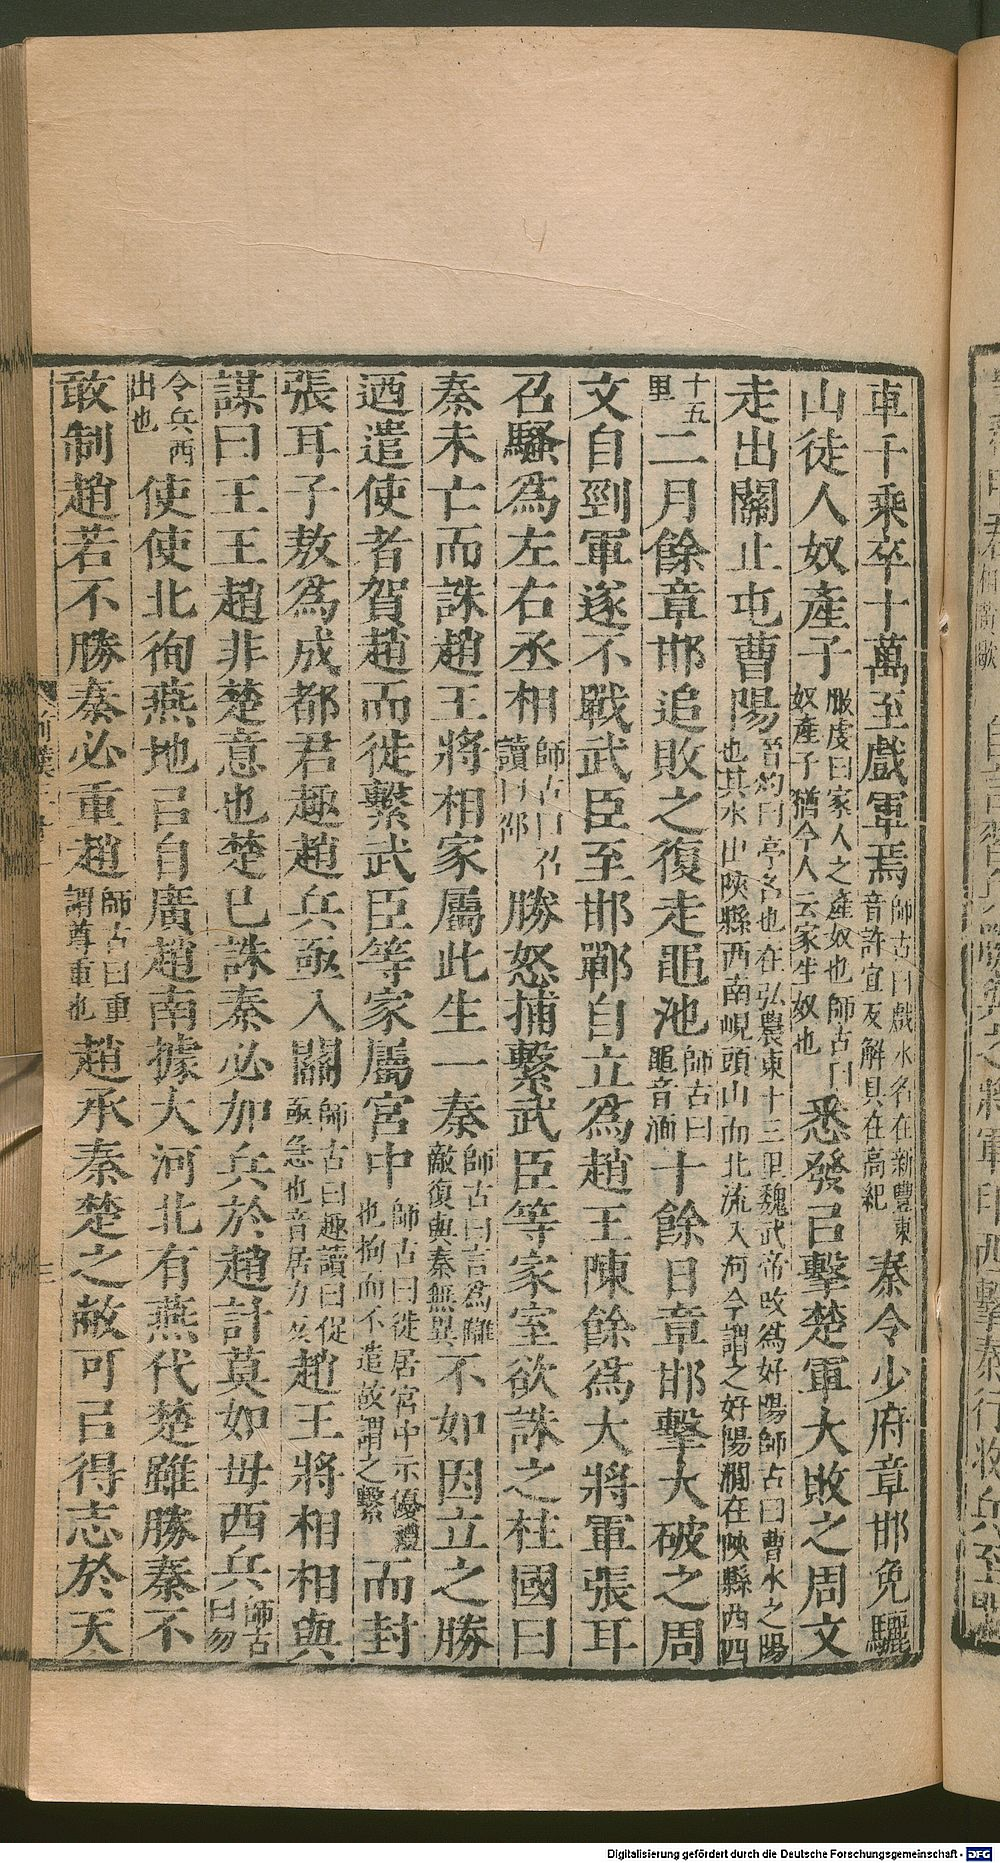 車千乗卒十萬至戲軍焉師古曰戲水名在新豐東音許宜反解具在高紀秦令少府章邯免驪
山徒人奴產子服虔曰家人之產奴也師古曰奴產子猶今人云家生奴也悉發㠯擊楚軍大敗之周文
走出關止屯曹陽晉灼曰亭名也在弘農東十三里魏武帝攺爲好陽師古曰曹水之陽也其水出陝縣西南峴頭山而北流入河今謂之好陽澗在陝縣西四
十五里二月餘章邯追敗之復走黽池師古曰黽音湎十餘日章邯擊大破之周
文自剄軍遂不戰武臣至邯鄲自立爲趙王陳餘爲大將軍張耳
召騷爲左右丞相師古曰召讀曰邵勝怒捕繫武臣等家室欲誅之柱國曰
秦未亡而誅趙王將相家屬此生一秦師古曰言爲讎敵復與秦無異不如因立之勝
迺遣使者賀趙而徙繫武臣等家屬宮中師古曰徙居宮中示優禮也拘而不遣故謂之繫而封
張耳子敖爲成都君趣趙兵亟入關師古曰趣讀曰促亟急也音居力反趙王將相相與
謀曰王王趙非楚意也楚巳誅秦必加兵於趙計莫如毋西兵師古曰勿
令兵西出也使使北徇燕地㠯自廣趙南據大河北有燕代楚雖勝秦不
敢制趙若不勝秦必重趙師古曰重謂尊重也趙承秦楚之敝可㠯得志於天
Digitalisierung gefördert durch die Deutsche Forschungsgemeinschaft - DFG